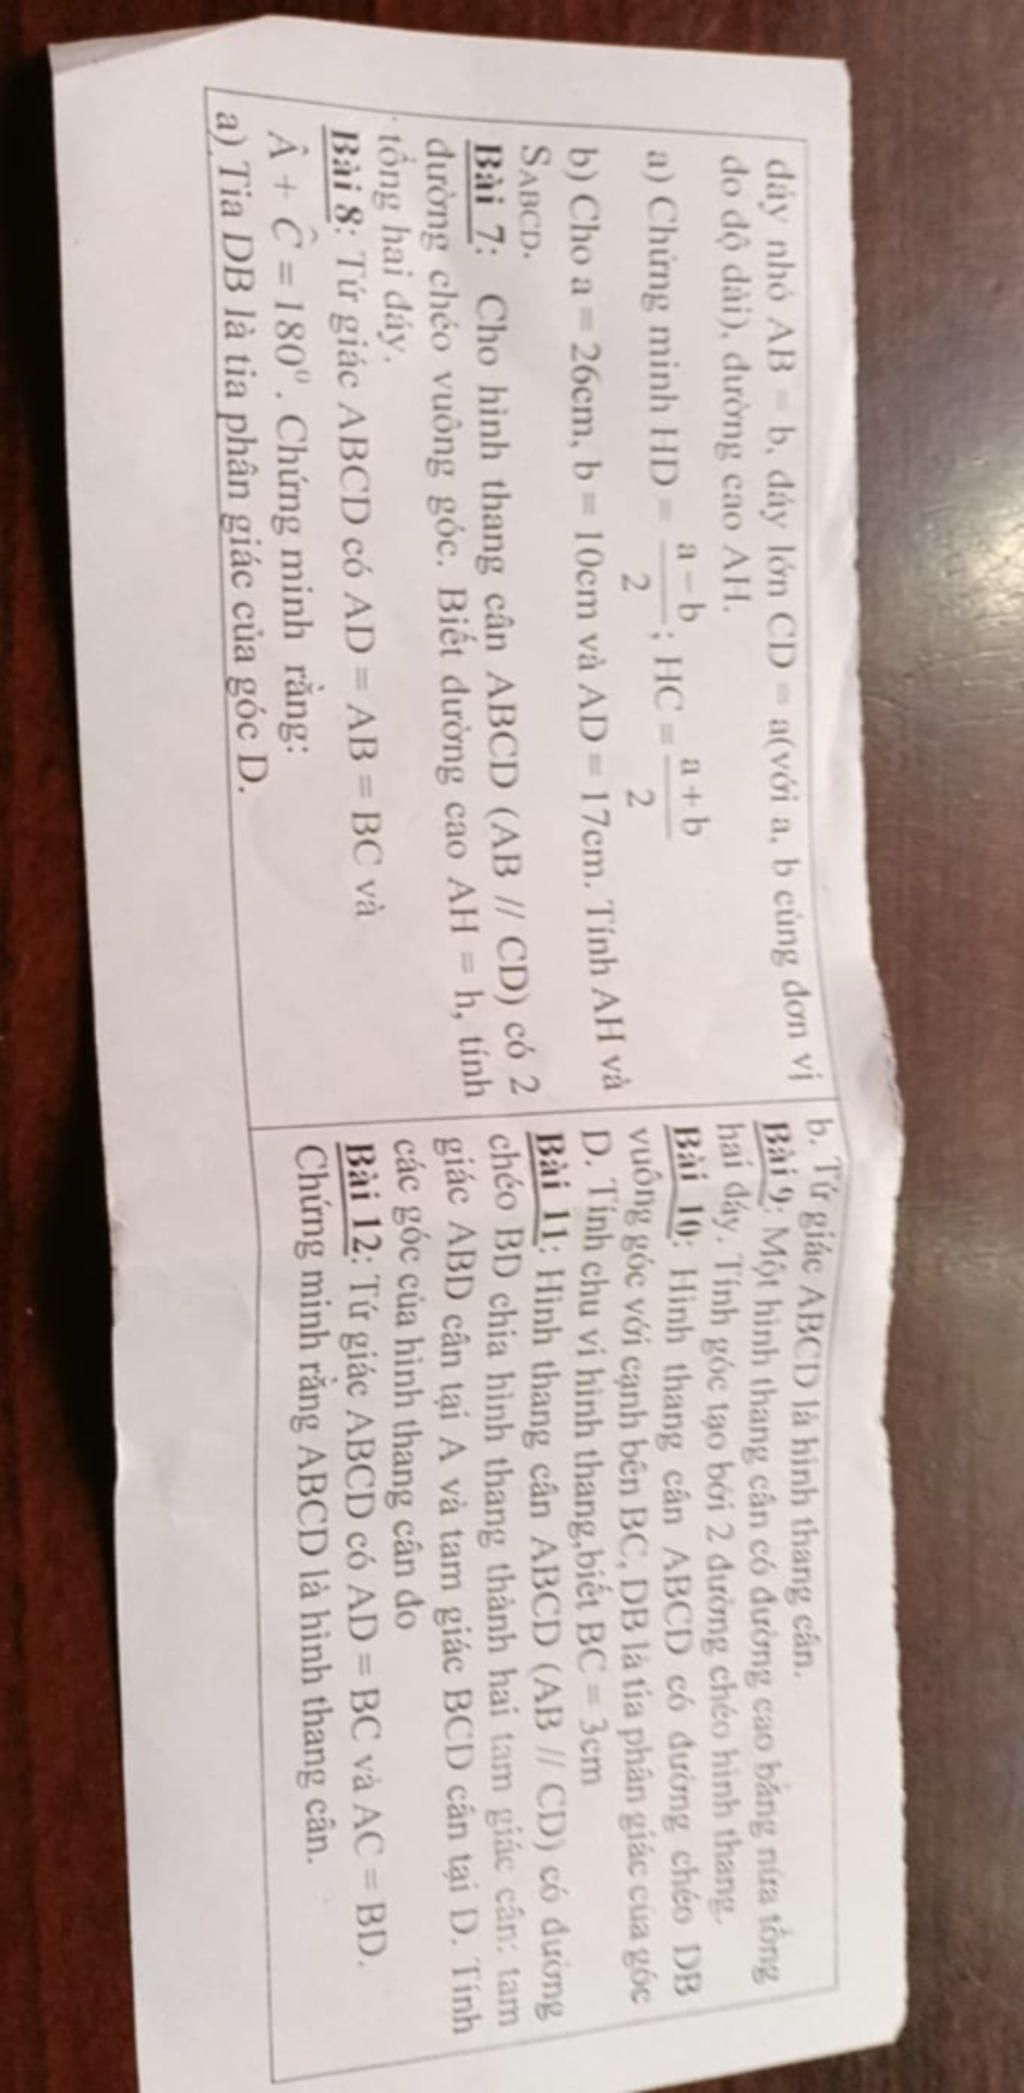 đáy nhỏ AB = b, đáy lớn CD = a(với a, b cùng đơn vị
đo độ dài), đường cao AH.
a) Chứng minh HD = \frac{a - b}{2}; HC = \frac{a + b}{2}
b) Cho a = 26cm, b = 10cm và AD = 17cm. Tính AH và
SABCD.
Bài 7: Cho hình thang cân ABCD (AB // CD) có 2
đường chéo vuông góc. Biết đường cao AH = h, tính
tổng hai đáy.
Bài 8: Tứ giác ABCD có AD = AB = BC và
Â + Ĉ = 180⁰. Chứng minh rằng:
a) Tia DB là tia phân giác của góc D.
b. Tứ giác ABCD là hình thang cân.
Bài 9: Một hình thang cân có đường cao bằng nửa tổng
hai đáy. Tính góc tạo bởi 2 đường chéo hình thang.
Bài 10: Hình thang cân ABCD có đường chéo DB
vuông góc với cạnh bên BC, DB là tia phân giác của góc
D. Tính chu vi hình thang,biết BC = 3cm
Bài 11: Hình thang cân ABCD (AB // CD) có đường
chéo BD chia hình thang thành hai tam giác cân: tam
giác ABD cân tại A và tam giác BCD cân tại D. Tính
các góc của hình thang cân đo
Bài 12: Tứ giác ABCD có AD = BC và AC = BD.
Chứng minh rằng ABCD là hình thang cân.